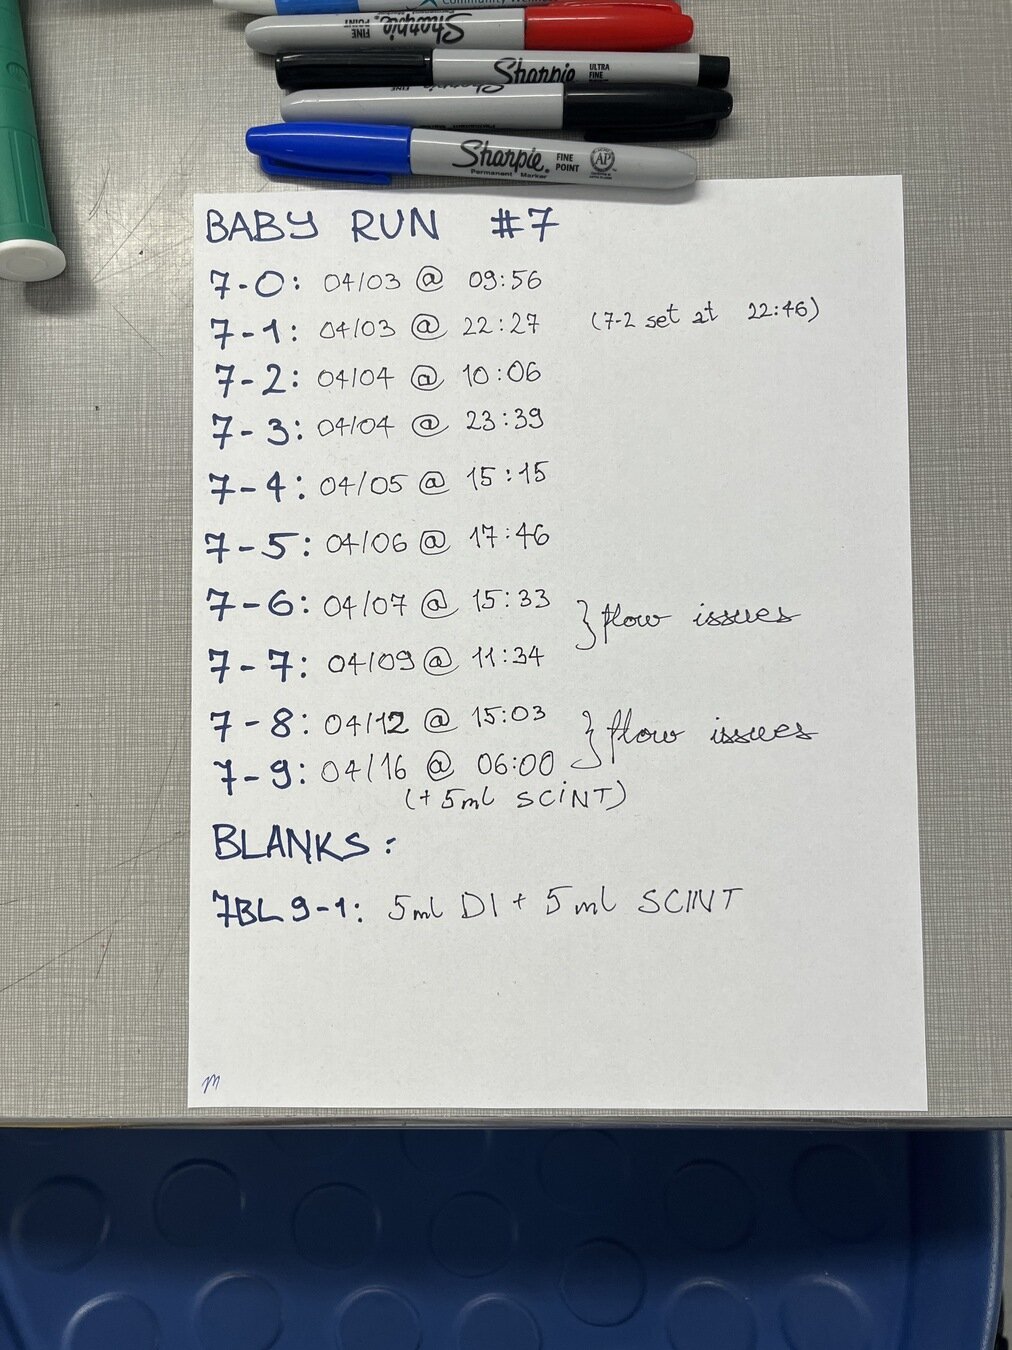 Community Wellness
Sharpie FINE POINT
Sharpie ULTRA FINE
Sharpie FINE
Sharpie. FINE POINT AP
Permanent Marker
BABY RUN #7
7-0: 04/03 @ 09:56
7-1: 04/03 @ 22:27 (7-2 set at 22:46)
7-2: 04/04 @ 10:06
7-3: 04/04 @ 23:39
7-4: 04/05 @ 15:15
7-5: 04/06 @ 17:46
7-6: 04/07 @ 15:33
} flow issues
7-7: 04/09 @ 11:34
7-8: 04/12 @ 15:03
} flow issues
7-9: 04/16 @ 06:00
(+ 5ml SCINT)
BLANKS:
7BL9-1: 5ml DI + 5ml SCINT
m